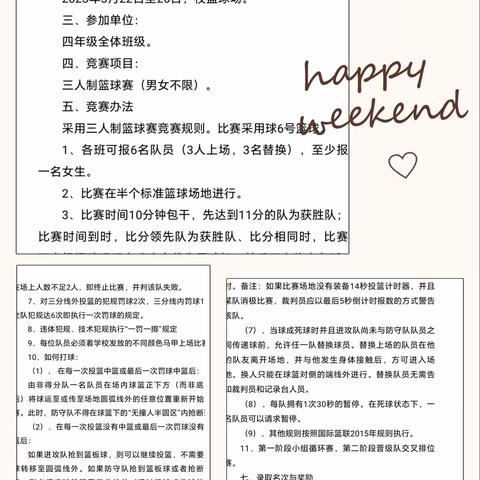 三、参加单位：
四年级全体班级。
四、竞赛项目：
三人制篮球赛（男女不限）。
五、竞赛办法
采用三人制篮球赛竞赛规则。比赛采用球6号篮球
1、各班可报6名队员（3人上场，3名替换），至少报
一名女生。
2、比赛在半个标准篮球场地进行。
3、比赛时间10分钟包干，先达到11分的队为获胜队；
比赛时间到时，比分领先队为获胜队、比分相同时，比赛
happy
weekend
在场上人数不足2人，即终止比赛，并判该队失败。
7、对三分线外投篮的犯规罚球2次，三分线内罚球1
全队犯规达6次即执行一次罚球的规定。
8、违体犯规、技术犯规执行“一罚一掷”规定
9、每位队员必须着学校发放的不同颜色马甲上场比赛
10、如何打球：
（1）、在每一次投篮中篮或最后一次罚球中篮后：
由非得分队一名队员在场内球篮正下方（而非底
）将球运至或传至场地圆弧线外的任意位置重新开始
赛。此时，防守队不得在球篮下的“无撞人半圆区”内抢断
（2）、在每一次投篮没有中篮或最后一次罚球没有
篮后：
如果进攻队抢到篮板球，则可以继续投篮，不需要
球转移至圆弧线外。如果防守队抢到篮板或者抢断
时。备注：如果比赛场地没有装备14秒投篮计时器，并且
某队消极比赛，裁判员应以最后5秒倒计时报数的方式警告
该队。
（7）、当球成死球时并且进攻队尚未与防守队队员之
间传递球前，允许任一队替换球员。替换上场的队员在他
的队友离开场地，并与他发生身体接触后，方可进入场
地。换人只能在球篮对侧的端线外进行。替换队员无需告
知裁判员和记录台人员。
（8）、每队拥有1次30秒的暂停。在死球状态下，一
名队员可以请求暂停。
（9）、其他规则按照国际篮联2015年规则执行。
11、第一阶段小组循环赛、第二阶段晋级队交叉排位
赛。
七、录取名次与奖励